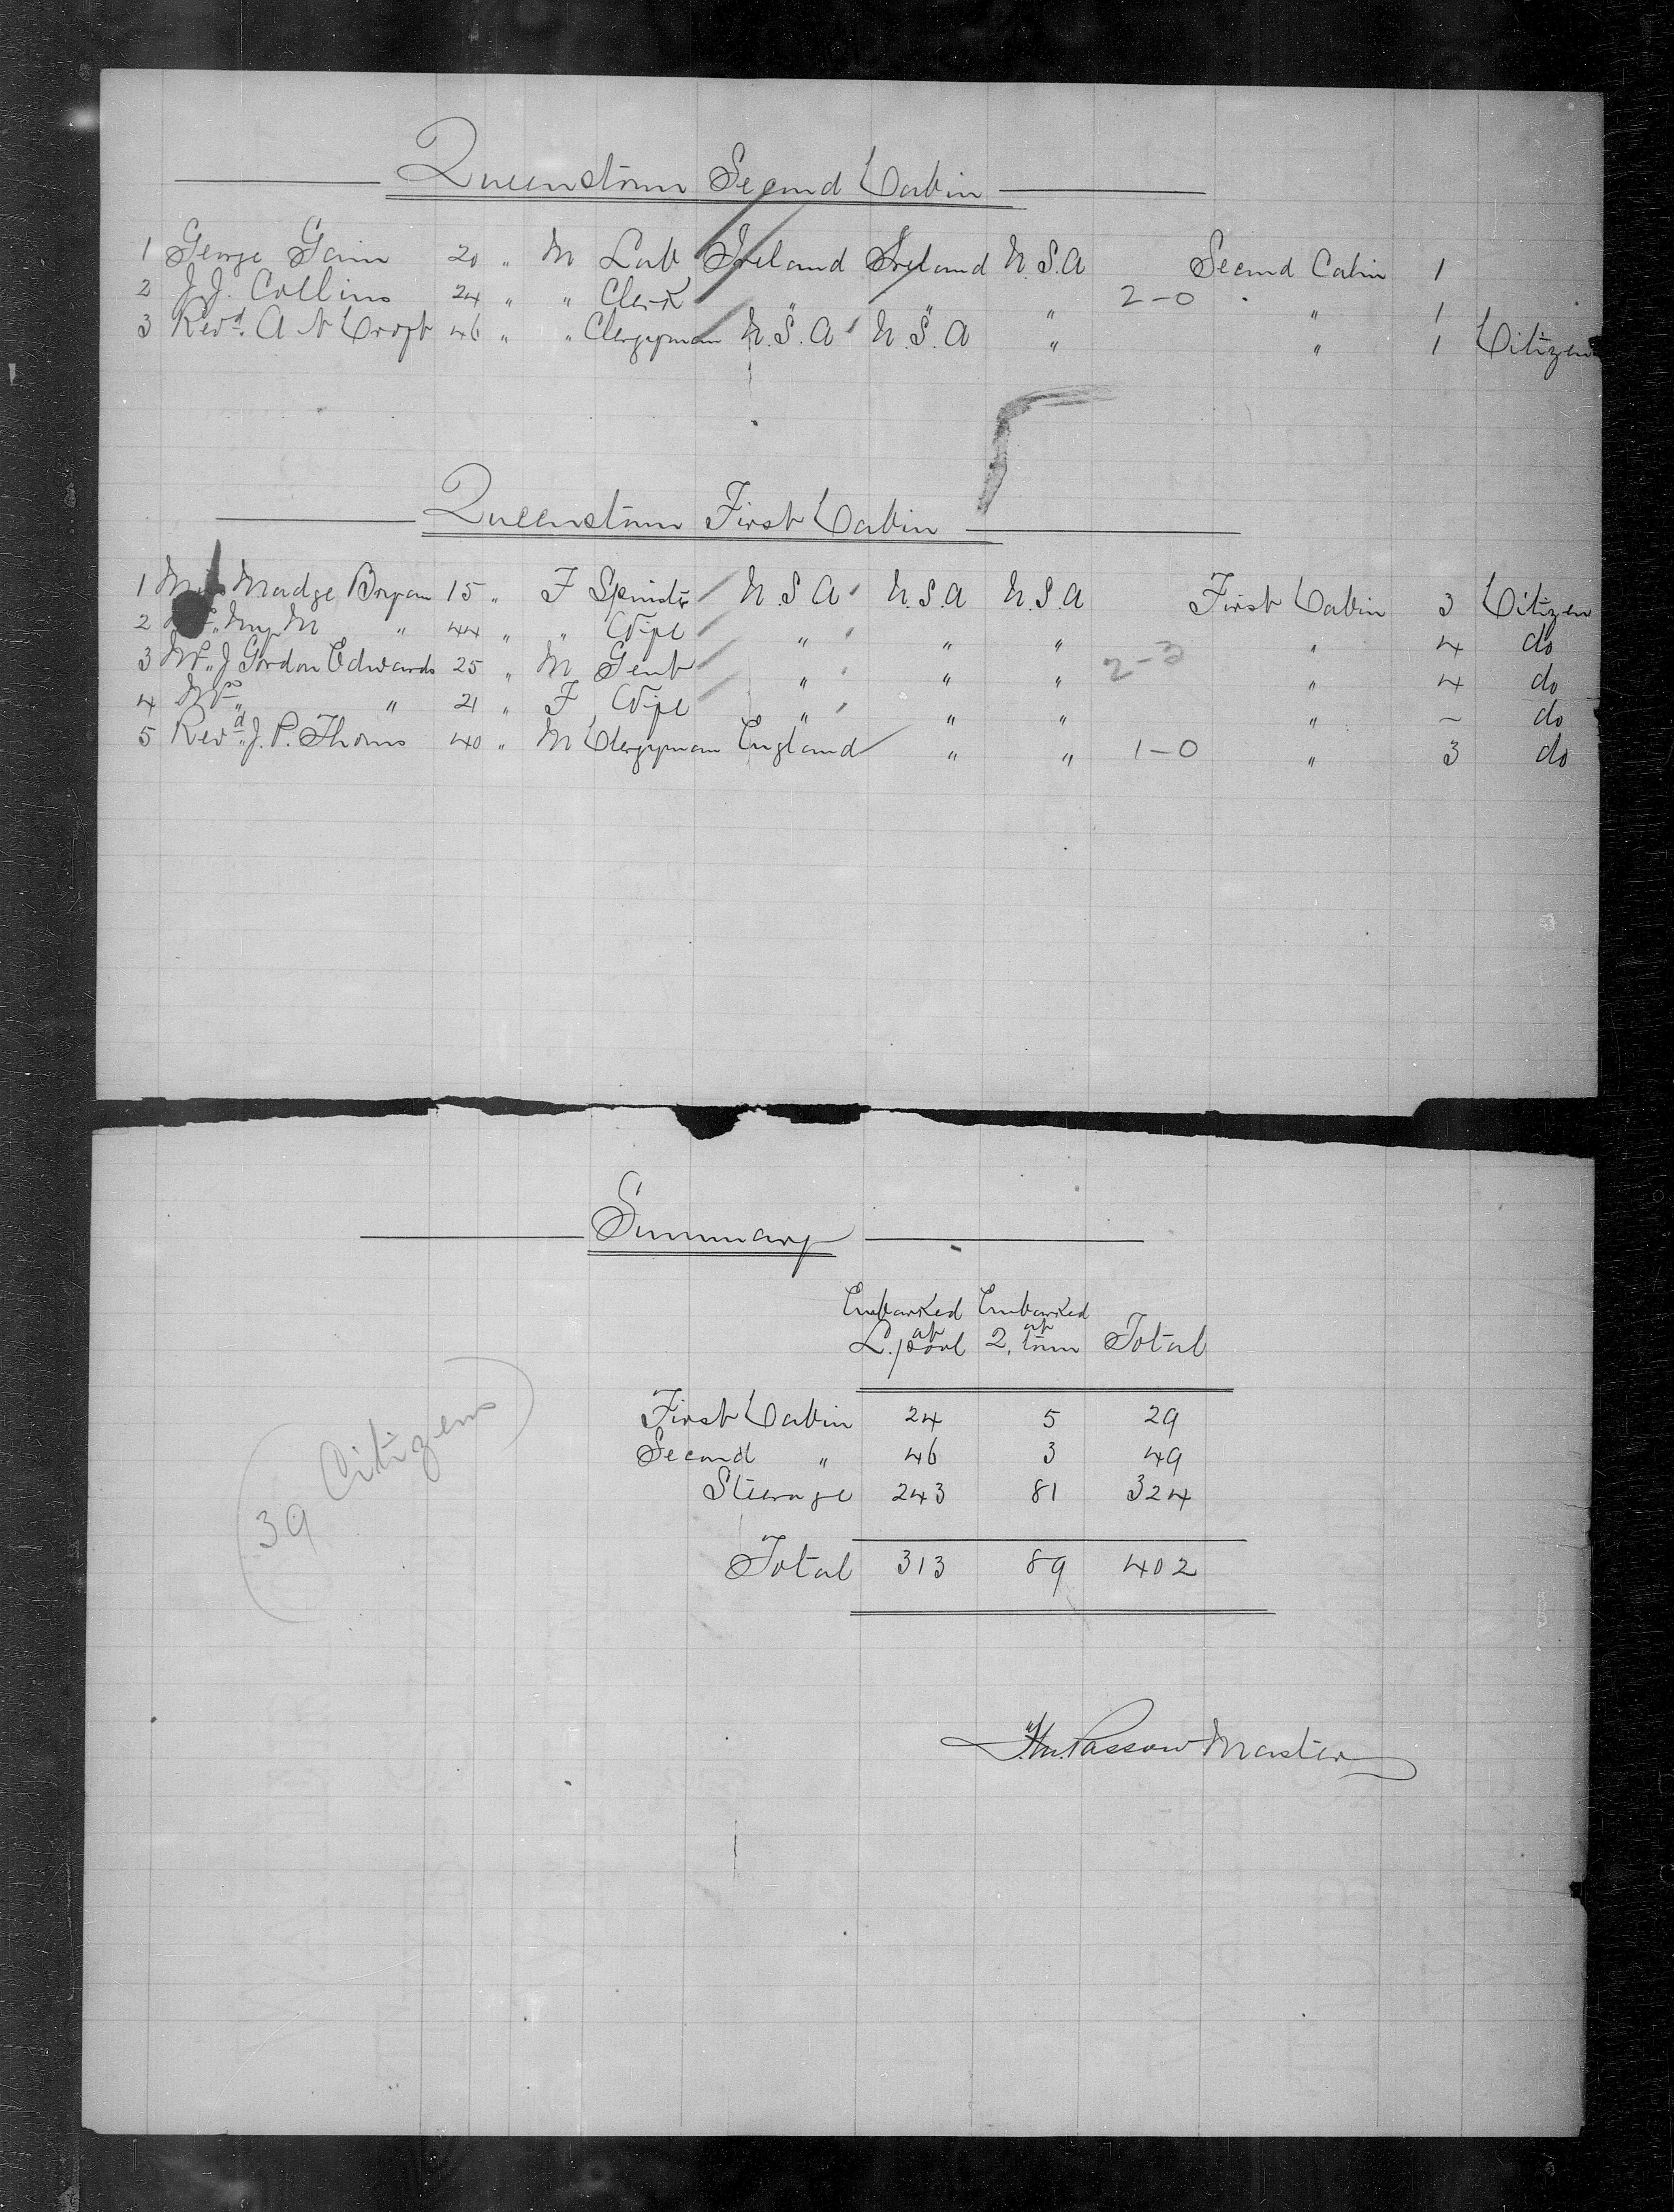 Queenstown Second Cabin
1 George Gainn 20 " M Lab Ireland Ireland U.S.A Second Cabin 1
2 J.J. Collins 24 " " Clerk " " " 2-0 " 1
3 Revd. A N Croft 46 " " Clergyman U.S.A U.S.A " " 1 Citizen
Queenstown First Cabin
1 Madge Bryan 15 " F Spinster U.S.A U.S.A U.S.A First Cabin 3 Citizen
2 " 44 " " Wife " " " " 4 do
3 Mr. J Gordon Edwards 25 " M Gent " " " 2-3 " 4 do
4 Mrs " " 21 " F Wife " " " " ~ do
5 Revd. J. P. Thoms 40 " M Clergyman England " " 1-0 " 3 do
Summary
Embarked Embarked
at at
L.pool Q.town Total
First Cabin 24 5 29
Second " 46 3 49
Steerage 243 81 324
Total 313 89 402
39 Citizens
Passow Master